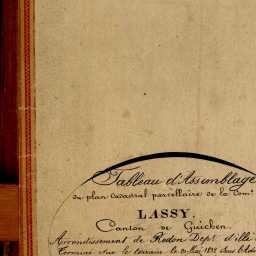 Tableau d'Assemblage
du plan cadastral parcellaire de la Com
LASSY,
Canton de Guichen.
Arrondissement de Redon Dept d'ille
Terminé sur le terrain le